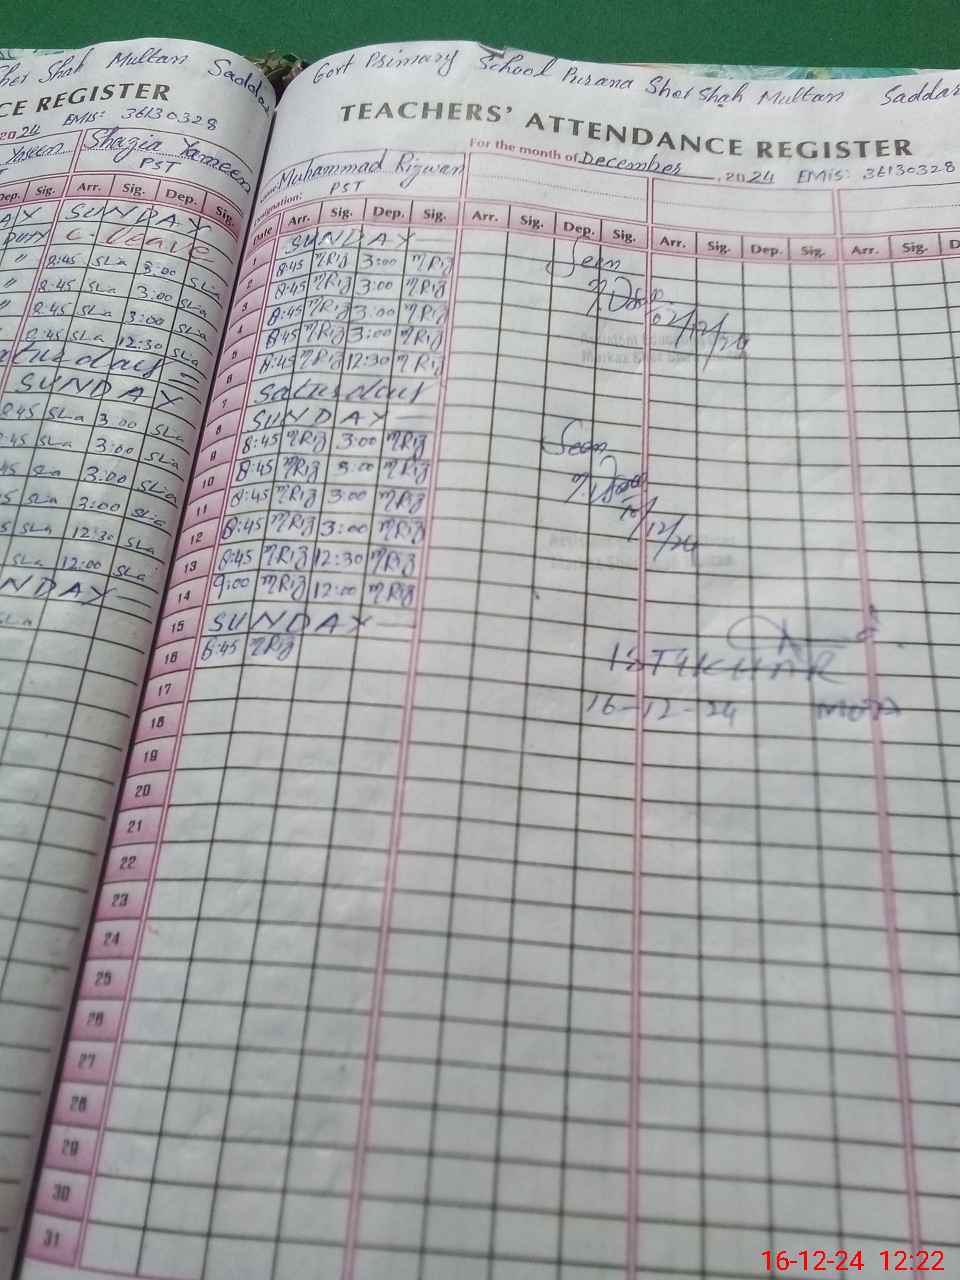 Sher Shah Multan Saddar
CE REGISTER
2024 EMIS: 36130328
Yaseen Shazia Yameen
PST
Dep. Sig. Arr. Sig. Dep. Sig.
AY SUNDAY
Duty C. Leave
" 8:45 SLa 3:00 SLa
" 8:45 SLa 3:00 SLa
" 8:45 SLa 3:00 SLa
8:45 SLa 12:30 SLa
SUNDAY
8:45 SLa 3:00 SLa
:45 SLa 3:00 SLa
45 SLa 3:00 SLa
5 SLa 3:00 SLa
5 SLa 12:30 SLa
SLa 12:00 SLa
NDAY
SLa
Govt Primary School Purana Sher Shah Multan Saddar
TEACHERS' ATTENDANCE REGISTER
For the month of December, 2024 EMIS: 36130328
Name: Muhammad Rizwan
Designation: PST
Date Arr. Sig. Dep. Sig. Arr. Sig. Dep. Sig. Arr. Sig. Dep. Sig. Arr. Sig. D
1 SUNDAY
2 8:45 MRiz 3:00 MRiz
3 8:45 MRiz 3:00 MRiz
4 8:45 MRiz 3:00 MRiz
5 8:45 MRiz 3:00 MRiz
6 8:45 MRiz 12:30 MRiz
7 Saturday
8 SUNDAY
9 8:45 MRiz 3:00 MRiz
10 8:45 MRiz 3:00 MRiz
11 8:45 MRiz 3:00 MRiz
12 8:45 MRiz 3:00 MRiz
13 8:45 MRiz 12:30 MRiz
14 9:00 MRiz 12:00 MRiz
15 SUNDAY
16 8:45 MRiz
17
18
19
20
21
22
23
24
25
26
27
28
29
30
31
Seen
02/12/24
Seen
10/12/24
16-12-24
16-12-24 12:22